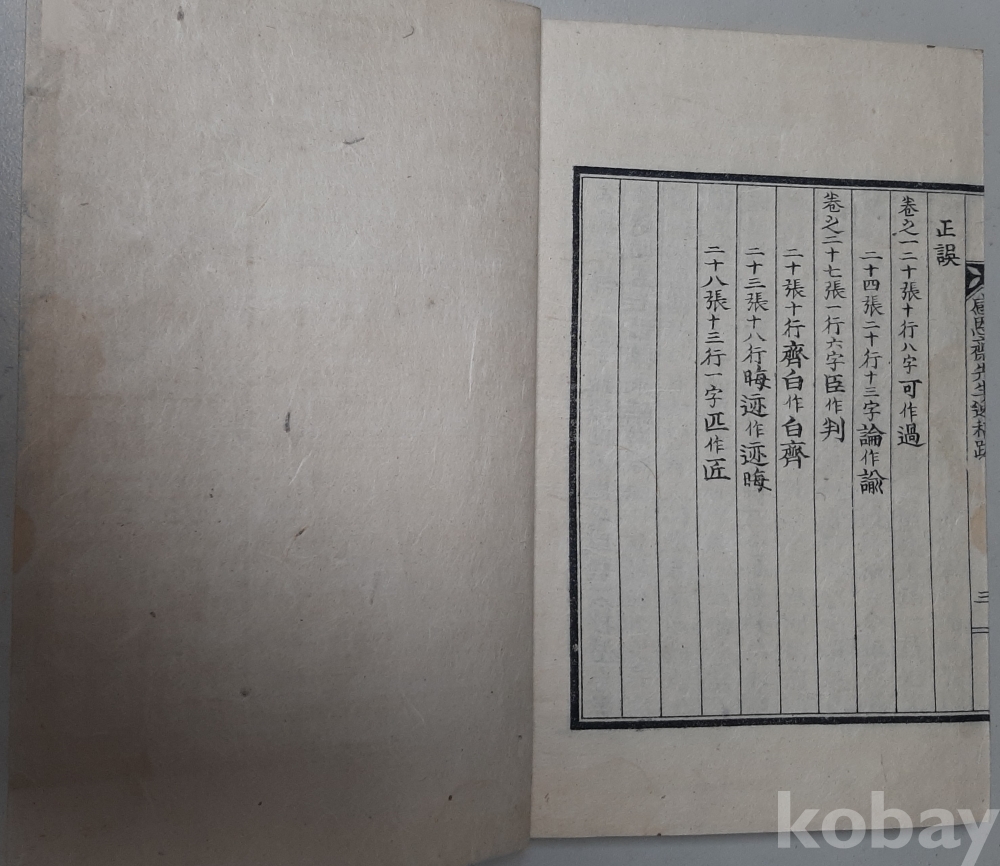 正誤
卷之一二十張十行八字可作過
二十四張二十行十三字論作諭
卷之二十七張一行六字臣作判
二十張十行齊白作白齊
二十三張十八行晦迹作迹晦
二十八張十三行一字匹作匠
齋先生
三
kobay